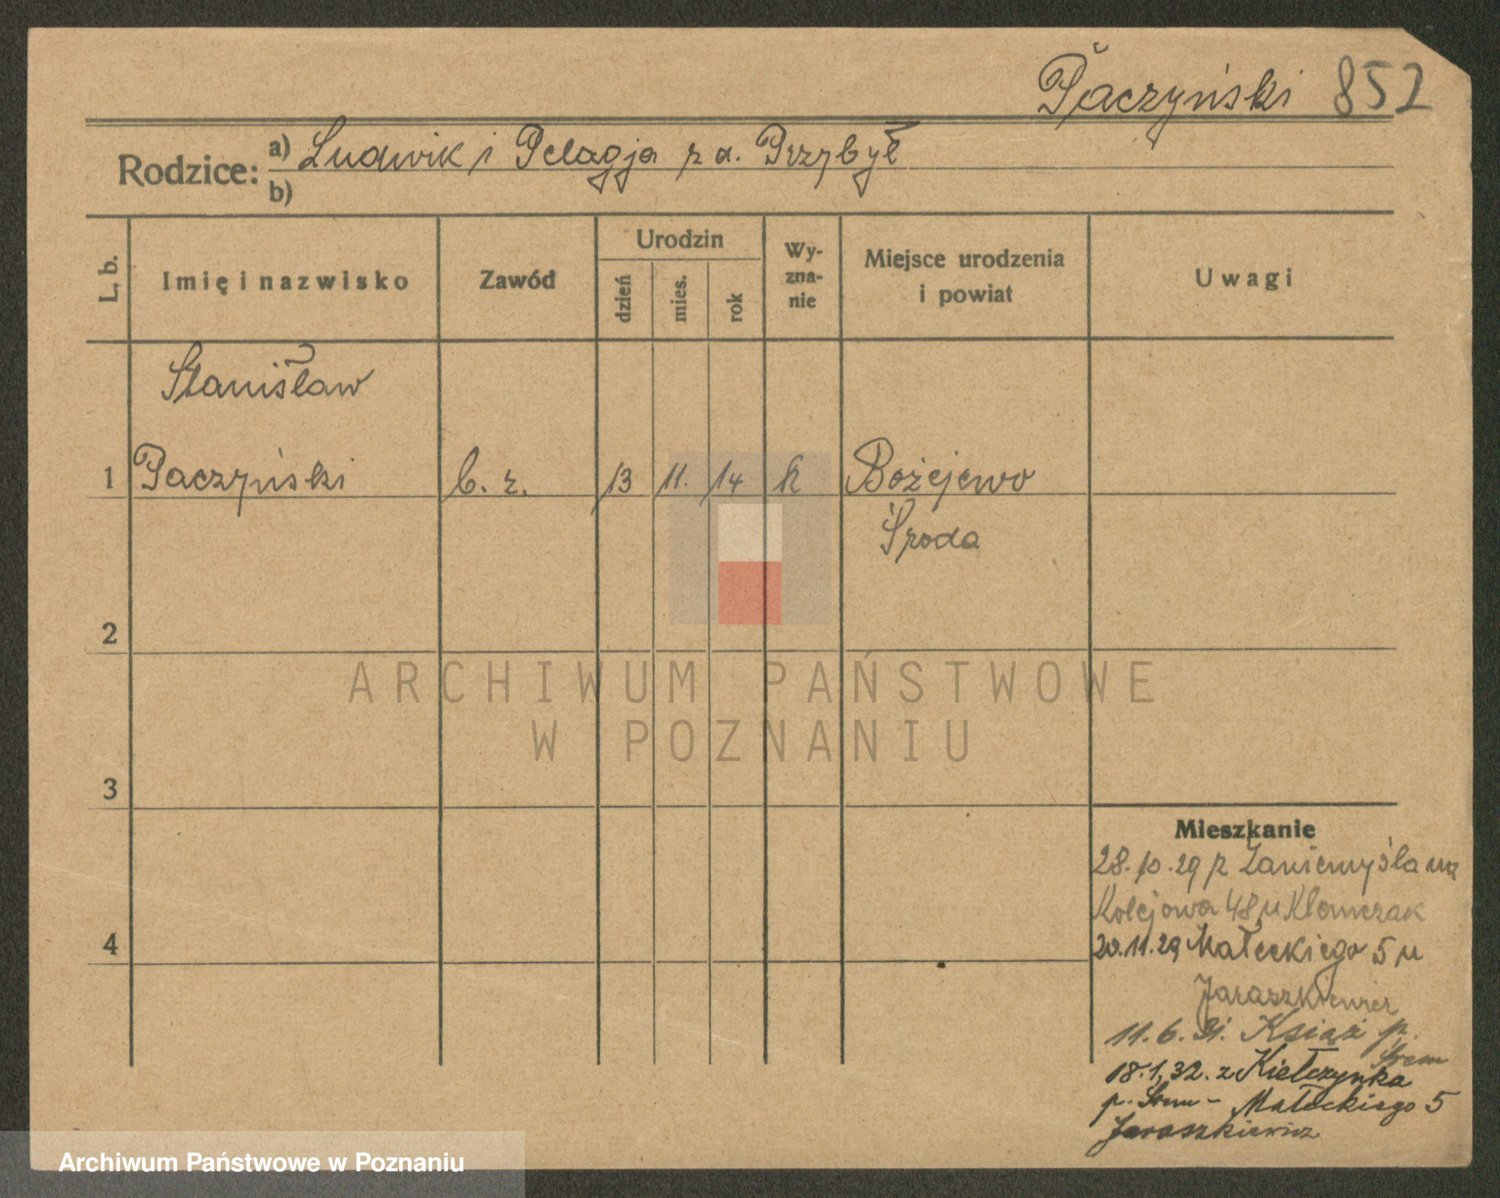 Paczyński 852
Rodzice: a) Ludwik i Pelagja z d. Przybył
b)
L. b. Imię i nazwisko Zawód Urodzin dzień mies. rok Wyznanie Miejsce urodzenia i powiat Uwagi
Stanisław
1 Paczyński b. z. 13 11. 14 k Bożejewo
Środa
2
ARCHIWUM PAŃSTWOWE
W POZNANIU
3
Mieszkanie
28.10.29 z Zaniemyśla na
Kolejowa 48 u
4
20.11.29 Małeckiego 5 u
Jaraszkiewicz
11.6.31. Książ p.
Śrem
18.1.32. z Kiełczynka
p. Śrem - Małeckiego 5
Jaraszkiewicz
Archiwum Państwowe w Poznaniu